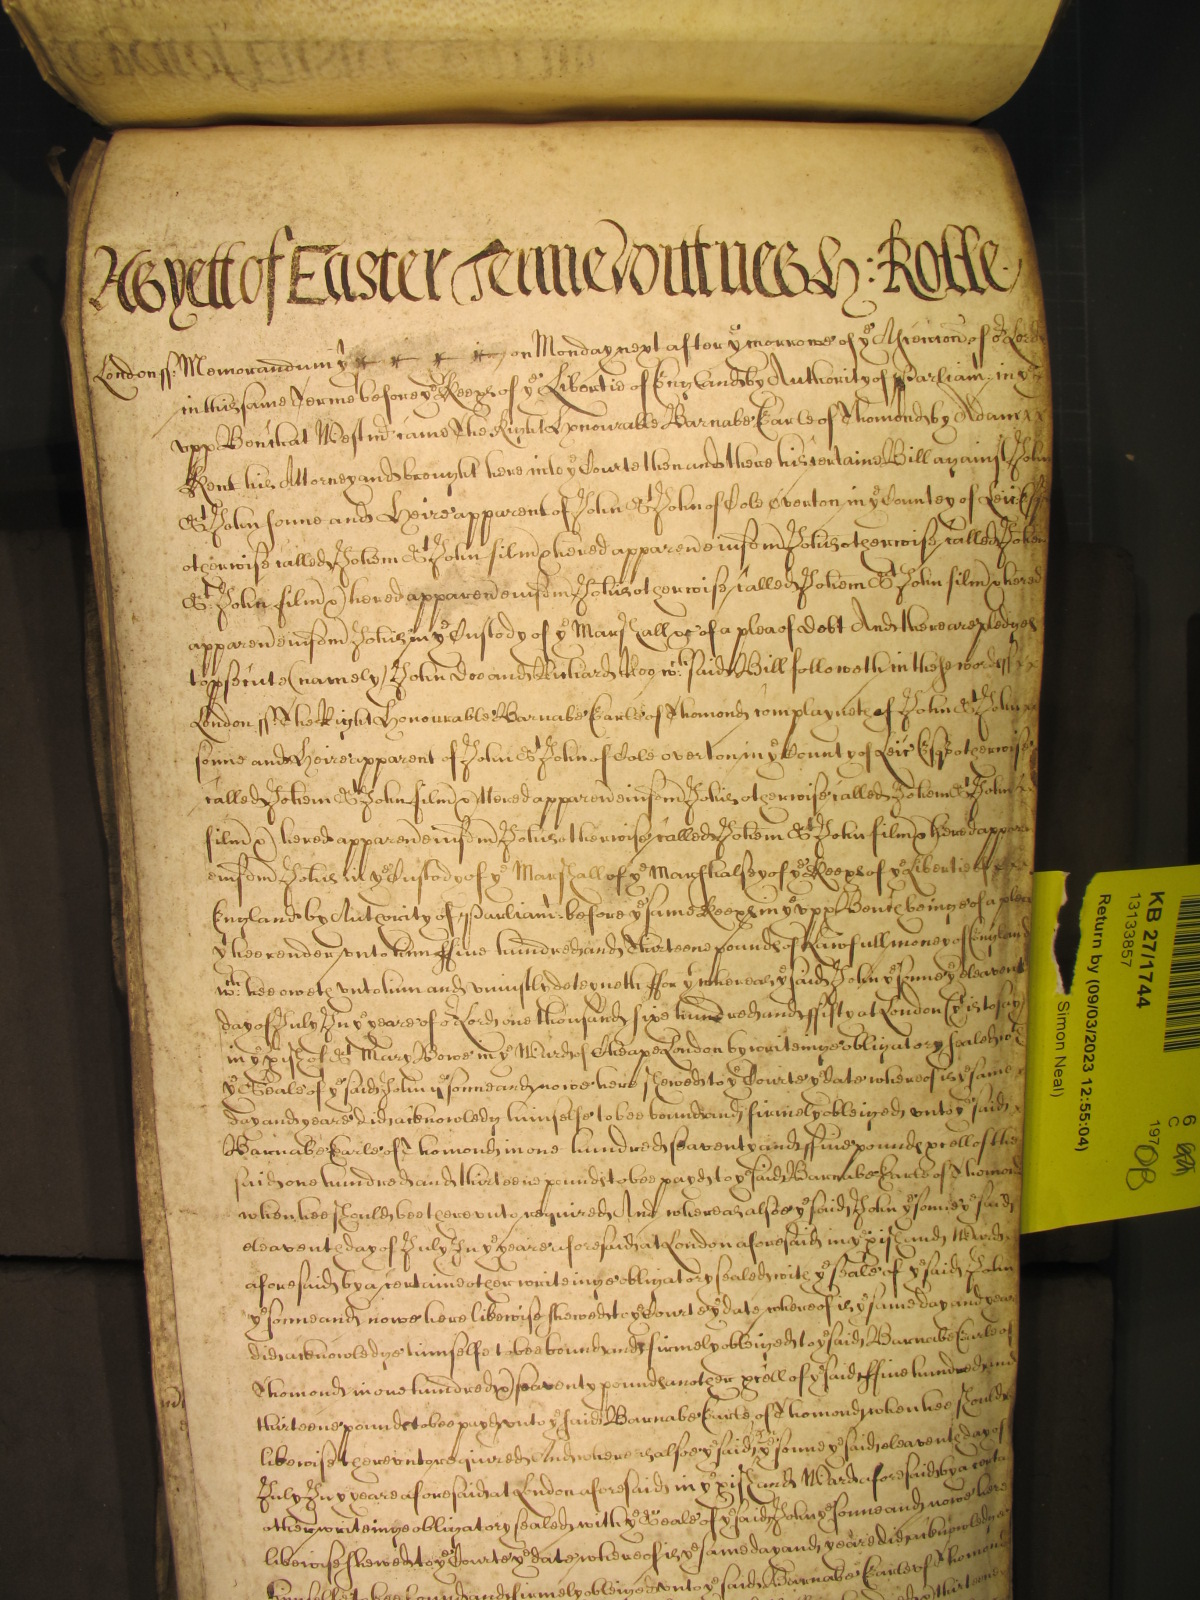 As yett of Easter Terme Wittnes H: Rolle
London ss: Memorandum yt on Monday next after ye morrowe of ye Ascencon of or Lord
in this same Terme before ye Keeps of ye Libertie of England by Authority of Parliamt in ye
upp Bench at Westmr came The Right Honourable Barnabe Earle of Thomond by Adam
Kent his Attorney and brought here into ye Courte then and there his certaine Bill against John
St John sonne and Heire apparent of John St John of Cole overton in ye County of Leic Esqr
otherwise called Johem St John film & hered apparen eiusdm Johis otherwise called Johem
St John film & hered apparen eiusdm Johis otherwise called Johem St John film & hered
apparen eiusdm Johis in ye Custody of ye Marshall &c of a plea of debt And there are pledges
to psecute (namely) John Doe and Richard Roo wch said Bill followeth in these words ss
London ss The Right Honourable Barnabe Earle of Thomond complayneth of John St John
sonne and Heire apparent of John St John of Cole overton in ye County of Leic Esqr otherwise
called Johem St John film & Hered apparen eiusdm Johis otherwise called Johem St John
film & hered apparen eiusdm Johis otherwise called Johem St John film & hered apparen
eiusdm Johis in ye Custody of ye Marshall of ye Marshalsey of ye Keeps of ye Libertie of
England by Authority of Parliamt before ye same Keeps in ye upp Bench beinge of a plea
yt hee render unto him ffive hundred and Thirteene pounds of Lawfull money of England
wch hee oweth unto him and uniustly deteyneth ffor yt whereas ye said John ye sonne ye eleaventh
day of July In ye yeare of or Lord one thousand sixe hundred and ffifty at London (yt is to say)
in ye pish of St Mary Bowe in ye Ward of Cheape London by writeinge obligatory sealed wth
ye Seale of ye said John ye sonne and nowe here shewed to ye Courte ye date whereof is ye same
day and yeare did acknowledg himselfe to bee bound and firmely obleiged unto ye said
Barnabe Earle of Thomond in one hundred seaventy and ffive pounds pcell of the
said one hundred and thirteene pounds to bee payd to ye said Barnabe Earle of Thomond
when hee should bee thereunto required And whereas alsoe ye said John ye sonne ye said
eleaventh day of July In ye yeare aforesaid at London aforesaid in ye pish and Ward
aforesaid by a certaine other writeinge obligatory sealed with ye seale of ye said John
ye sonne and nowe here likewise shewed to ye Courte ye date whereof is ye same day and yeare
did acknowledge himselfe to bee bound and firmely obleiged to ye said Barnabe Earle of
Thomond in one hundred & seaventy pounds another pcell of ye said ffive hundred and
thirteene pounds to bee payd unto ye said Barnabe Earle of Thomond when hee should
likewise thereunto required And whereas alsoe ye said ye sonne ye said eleaventh day of
July In ye yeare aforesaid at London aforesaid in ye pish and Ward aforesaid by a certaine
other writeinge obligatory sealed with ye Seale of ye said John ye sonne and nowe here
likewise shewed to ye Courte ye date whereof is ye same day and yeare did acknowledge
himselfe to bee bound and firmely obleiged unto ye said Barnabe Earle of Thomond
KB 27/1744
13133857
Return by (09/03/2023 12:55:04)
Simon Neal)
6
C
197